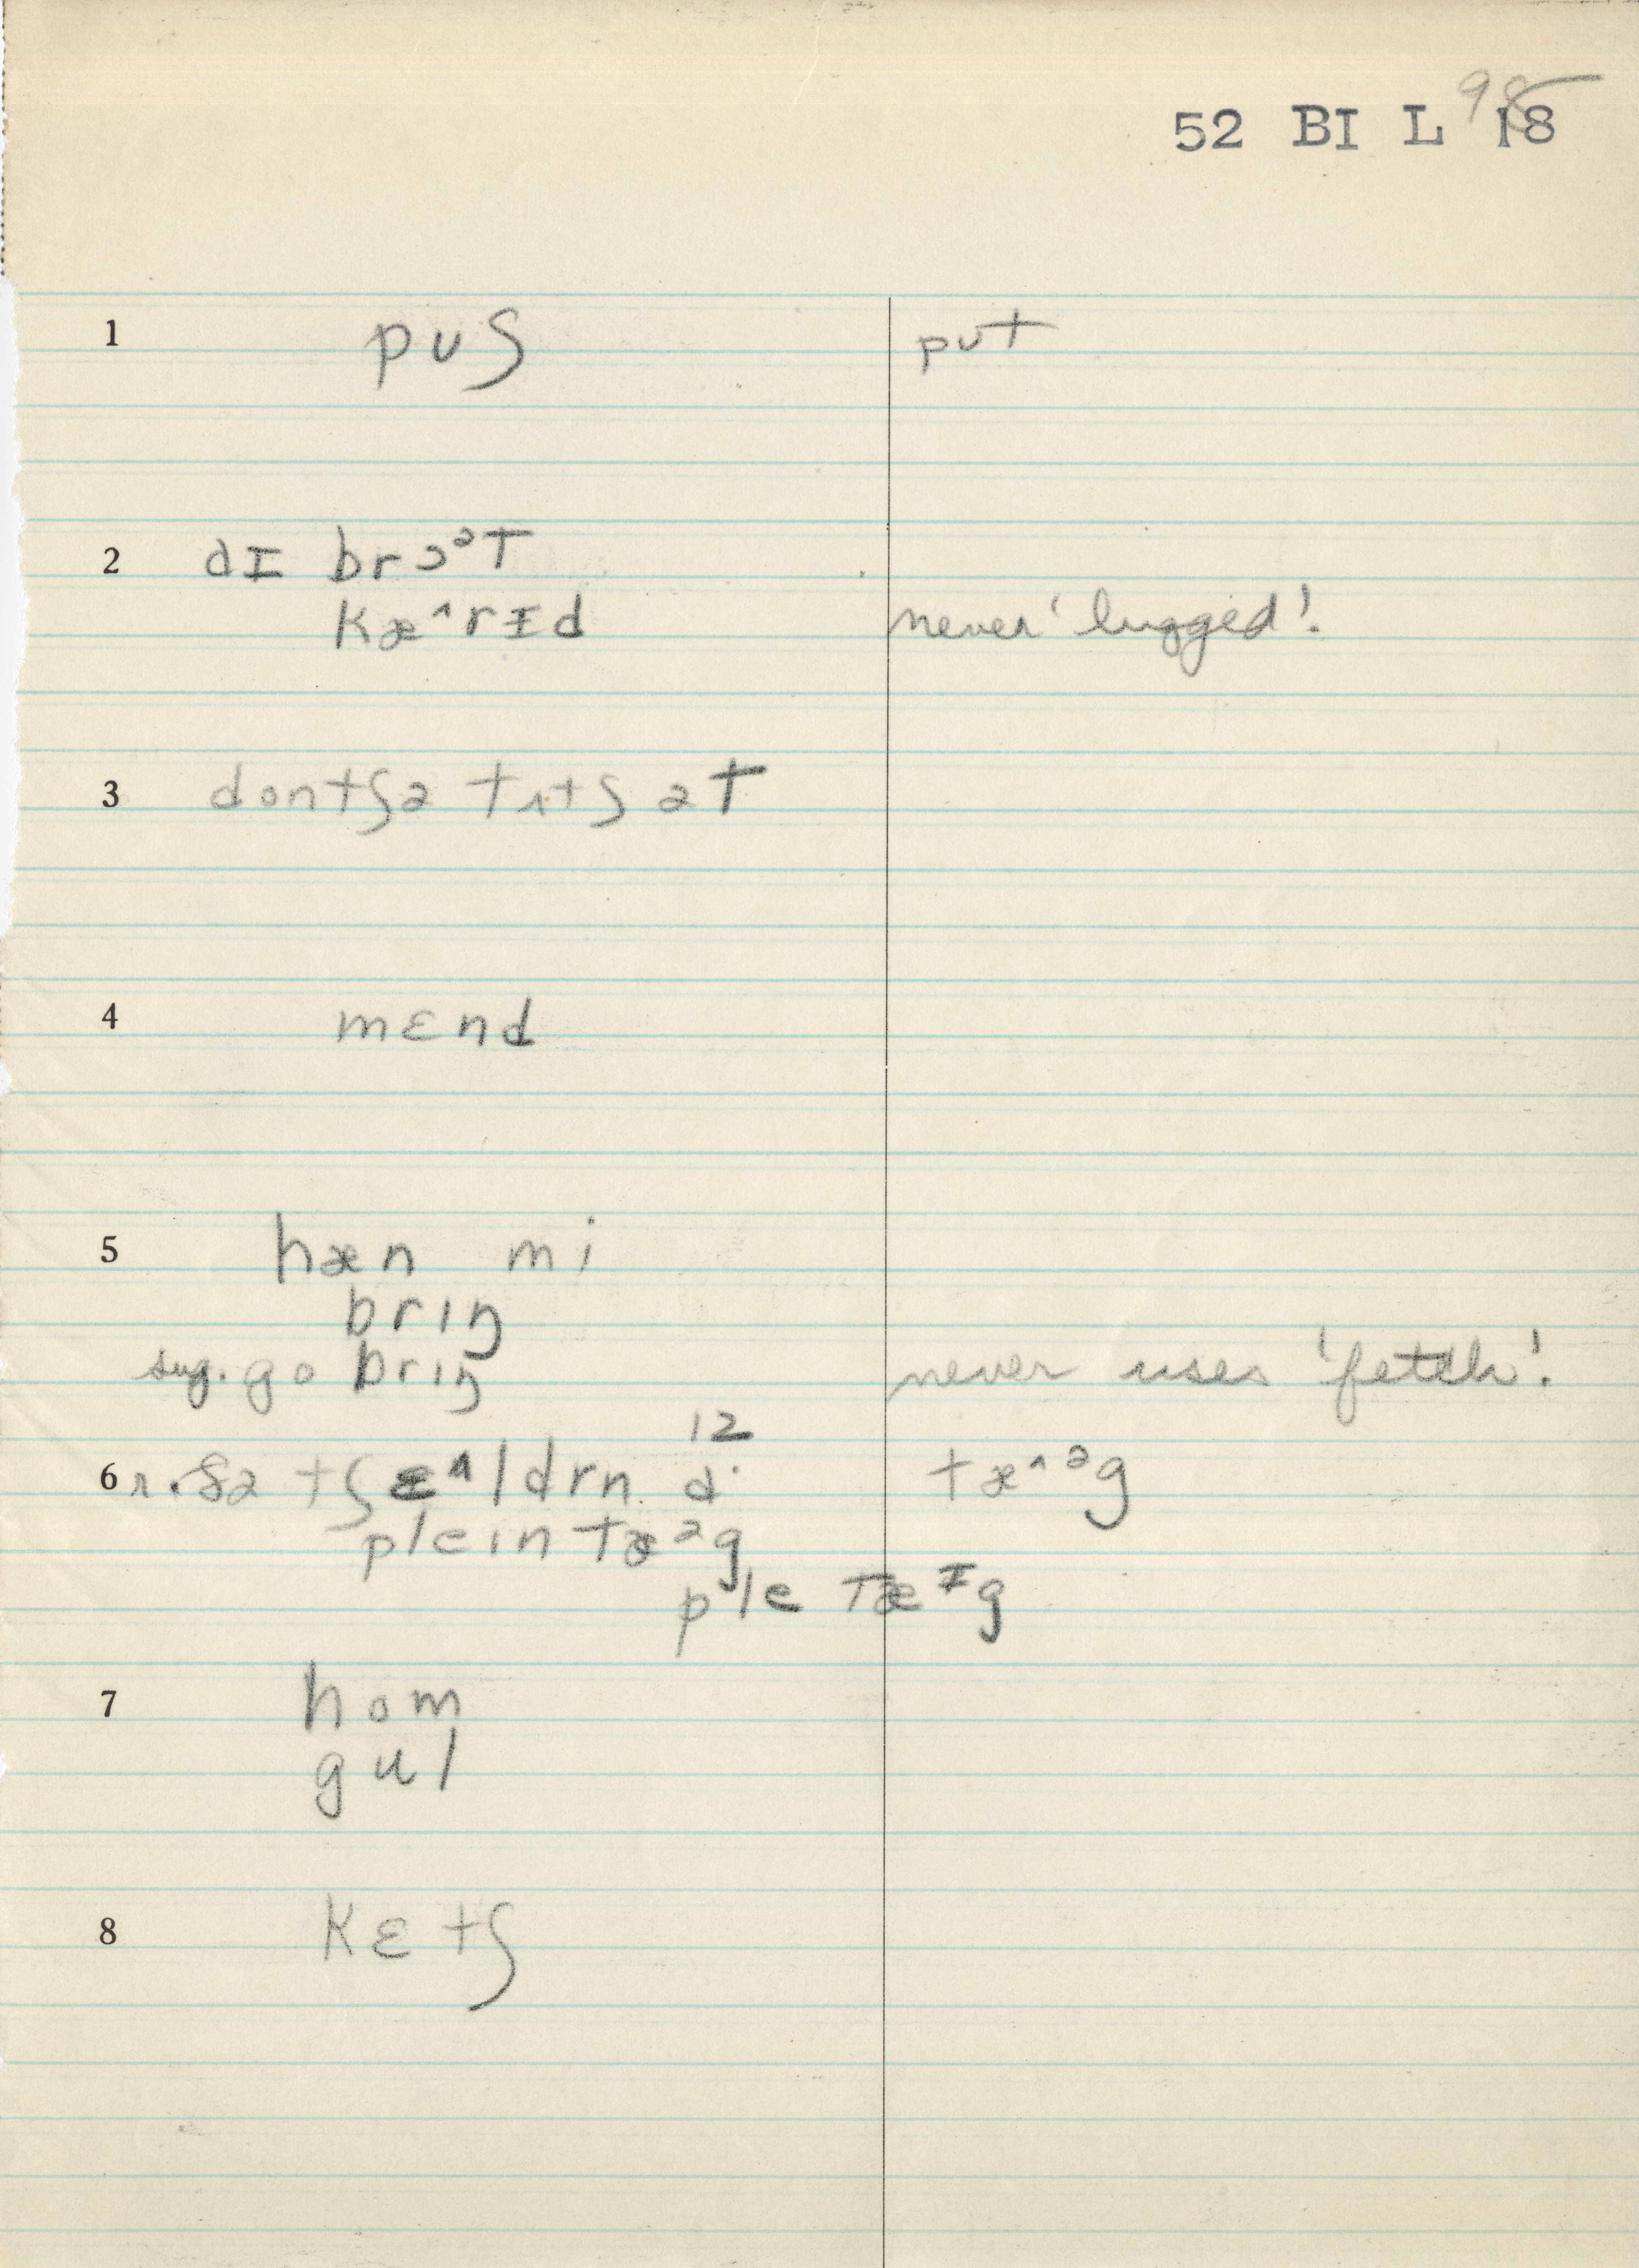 98
52 BI L 18
1 pʊʃ put
2 dɪ brɔᵊt
kæ^rɪd never 'lugged'.
3 dontʃə tʌtʃ ət
4 mɛnd
5 hæn mi
brɪŋ
sug. go brɪŋ never uses 'fetch'.
6 r. ðə tʃɛ^ldrn d· ɪz tæ^ᵊg
pleɪn tæᵊg
ple tæᶦg
7 hom
gul
8 kɛtʃ